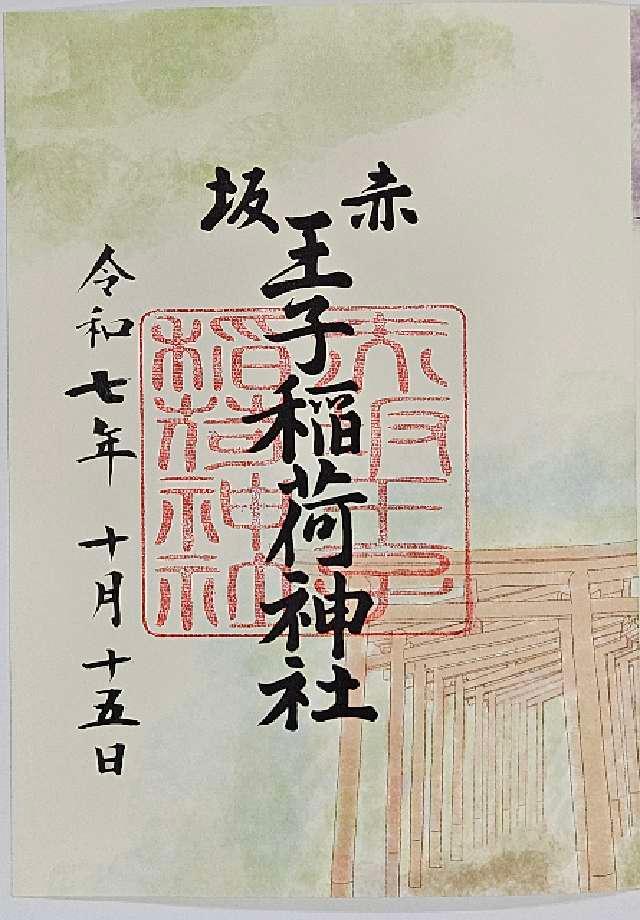 赤坂
王子稲荷神社
令和七年 十月 十五日
赤坂王子
稲荷神社